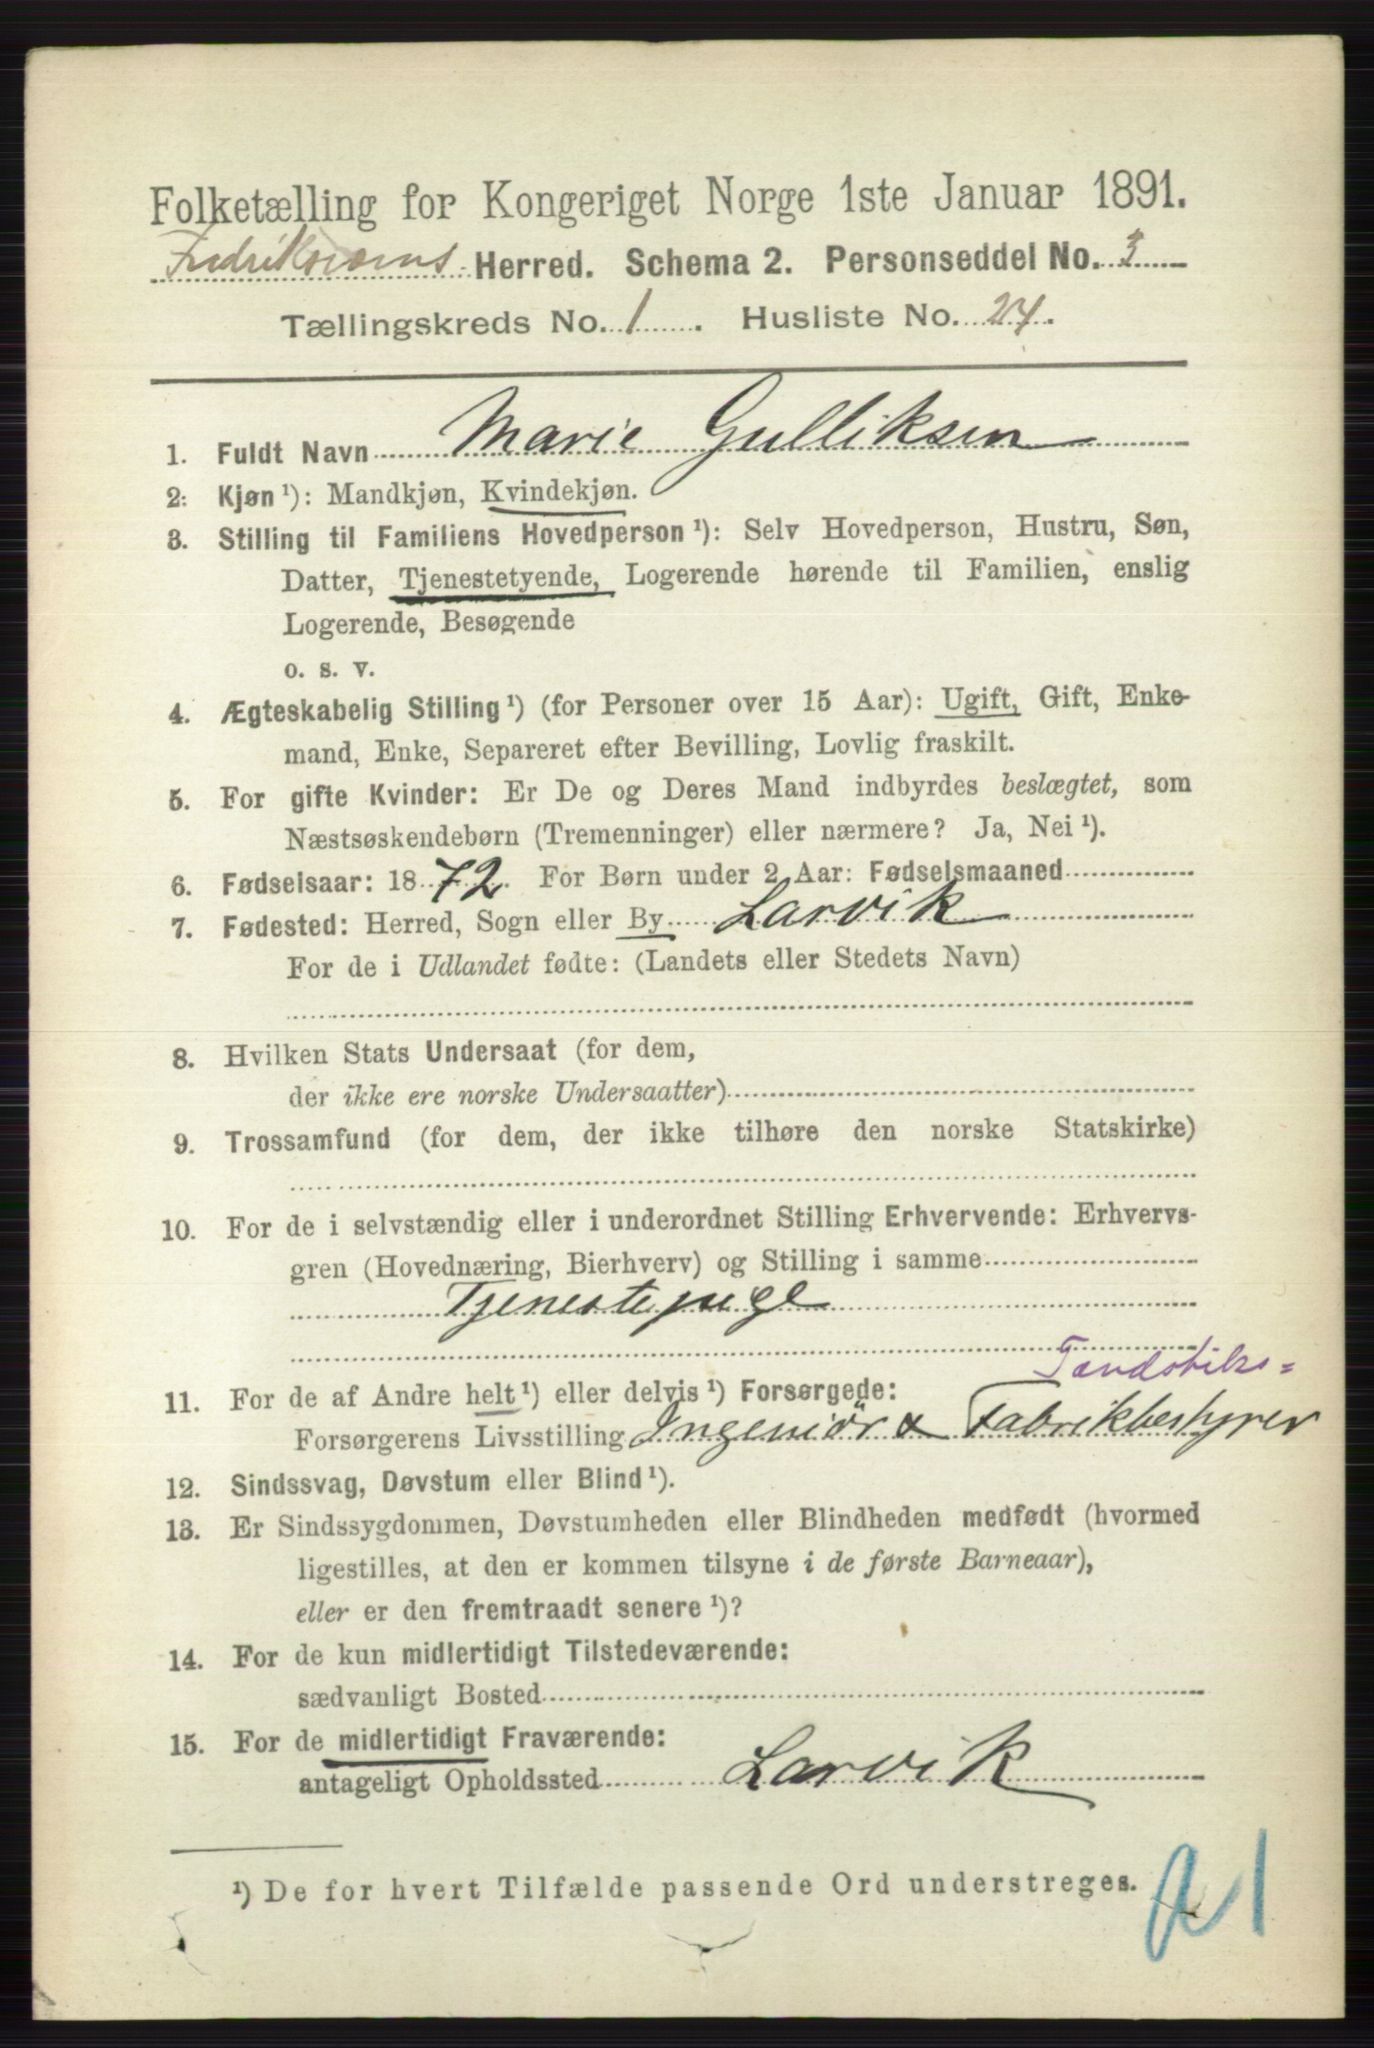 Folketælling for Kongeriget Norge 1ste Januar 1891.
Fredriksværns Herred. Schema 2. Personseddel No. 3
Tællingskreds No. 1. Husliste No. 24.
1. Fuldt Navn Marie Gulliksen
2: Kjøn ¹): Mandkjøn, Kvindekjøn.
3. Stilling til Familiens Hovedperson ¹): Selv Hovedperson, Hustru, Søn,
Datter, Tjenestetyende, Logerende hørende til Familien, enslig
Logerende, Besøgende
o. s. v.
4. Ægteskabelig Stilling ¹) (for Personer over 15 Aar): Ugift, Gift, Enke-
mand, Enke, Separeret efter Bevilling, Lovlig fraskilt.
5. For gifte Kvinder: Er De og Deres Mand indbyrdes beslægtet, som
Næstsøskendebørn (Tremenninger) eller nærmere? Ja, Nei ¹).
6. Fødselsaar: 1872. For Børn under 2 Aar: Fødselsmaaned
7. Fødested: Herred, Sogn eller By Larvik
For de i Udlandet fødte: (Landets eller Stedets Navn)
8. Hvilken Stats Undersaat (for dem,
der ikke ere norske Undersaatter)
9. Trossamfund (for dem, der ikke tilhøre den norske Statskirke)
10. For de i selvstændig eller i underordnet Stilling Erhvervende: Erhvervs-
gren (Hovednæring, Bierhverv) og Stilling i samme
Tjenestepige
Tændstiks=
11. For de af Andre helt ¹) eller delvis ¹) Forsørgede:
Forsørgerens Livsstilling Ingeniör & Fabrikbestyrer
12. Sindssvag, Døvstum eller Blind ¹).
13. Er Sindssygdommen, Døvstumheden eller Blindheden medfødt (hvormed
ligestilles, at den er kommen tilsyne i de første Barneaar),
eller er den fremtraadt senere ¹)?
14. For de kun midlertidigt Tilstedeværende:
sædvanligt Bosted
15. For de midlertidigt Fraværende:
antageligt Opholdssted Larvik
¹) De for hvert Tilfælde passende Ord understreges.